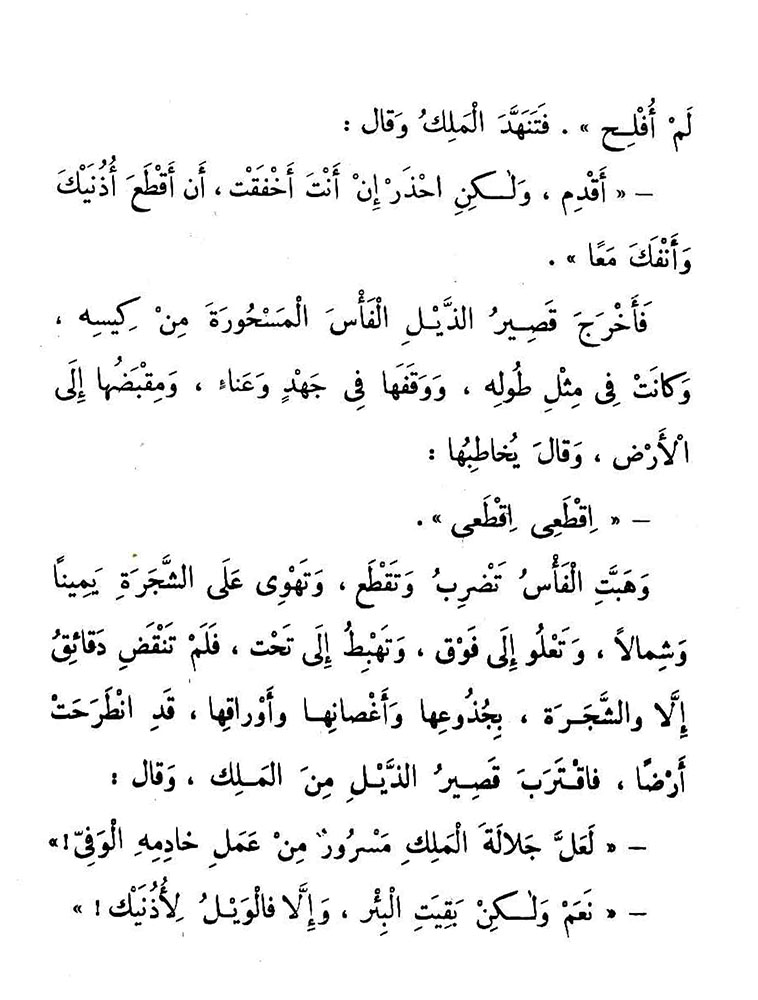 لَمْ أُفْلِح » . فَتَنَهَّدَ الْمَلِكُ وَقال :
— « أَقْدِم ، وَلٰكِنِ احْذَرْ إِنْ أَنْتَ أَخْفَقْت ، أَن أَقْطَعَ أُذُنَيْكَ
وَأَنْفَكَ مَعًا » .
فَأَخْرَجَ قَصِيرُ الذَّيْلِ الْفَأْسَ الْمَسْحُورَةَ مِنْ كِيسِه ،
وَكانَتْ فِى مِثْلِ طُولِه ، وَوَقَفَها فِى جَهْدٍ وَعَناء ، وَمِقْبَضُها إِلَى
الْأَرْض ، وَقالَ يُخاطِبُها :
— « اِقْطَعِى اِقْطَعى » .
وَهَبَّتِ الْفَأْسُ تَضْرِبُ وَتَقْطَع ، وَتَهْوِى عَلَى الشَّجَرَةِ يَمِينًا
وَشِمالاً ، وَتَعْلُو إِلَى فَوْق ، وَتَهْبِطُ إِلَى تَحْت ، فَلَمْ تَنْقَضِ دَقائِقُ
إِلَّا والشَّجَرَة ، بِجُذُوعِها وَأَغْصانِها وأَوْراقِها ، قَدِ انْطَرَحَتْ
أَرْضًا ، فاقْتَرَبَ قَصِيرُ الذَّيْلِ مِنَ المَلِك ، وَقال :
— « لَعَلَّ جَلالَةَ الْمَلِكِ مَسْرُورٌ مِنْ عَمَلِ خادِمِهِ الْوَفِىّ ! »
— « نَعَمْ وَلٰكِنْ بَقِيَتِ الْبِئْر ، وَإِلَّا فالْوَيْلُ لِأُذُنَيْك ! »